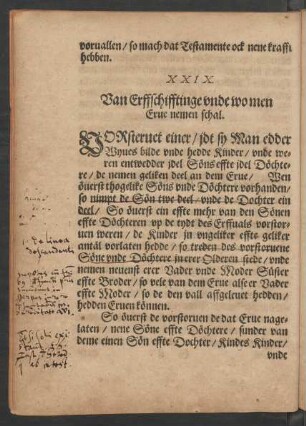 voruallen / so mach dat Testamente ock nene krafft
hebben.
XXIX.
Van Erffschifftinge vnde wo men
Erue nemen schal.
VORsteruet einer / jdt sy Man edder
Wyues bilde vnde hedde Kinder / vnde we-
ren entwedder jdel Söns effte jdel Döchte-
re / de nemen geliken deel an dem Erue / Wen
öuerst thogelike Söns vnde Döchtere vorhanden /
so nimpt de Sön twe deel / vnde de Dochter ein
deel / So öuerst ein effte mehr van den Sönen
effte Döchteren vp de tydt des Erffuals vorstor-
uen weren / de Kinder in vngeliker effte geliker
antál vorlaten hedde / so treden des vorstoruenen
Söne vnde Döchtere in erer Olderen stede / vnde
nemen neuenst erer Vader vnde Moder Süster
effte Broder / so vele van dem Erue alse er Vader
effte Moder / so de den vall affgeleuet hedden /
hedden Eruen können.
So öuerst de vorstoruende dat Erue nage-
laten / nene Söne effte Döchtere / sunder van
deme einen Sön effte Dochter / Kindes Kinder /
vnde